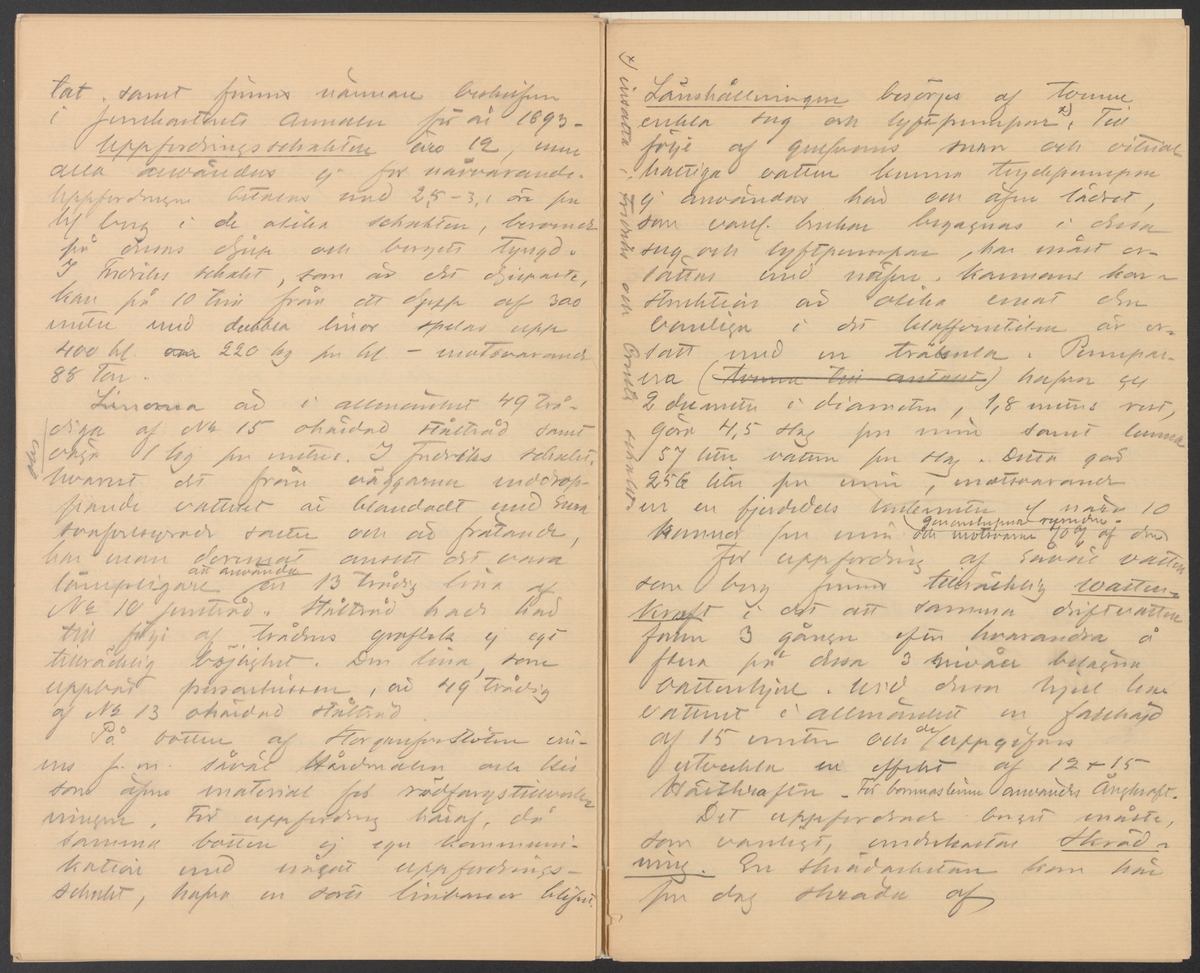 tat, samt finnes närmare beskrifven
i Jernkontorets Annaler för år 1893 -
Uppfordringsschakten äro 12, men
alla användas ej för närvarande.
Uppfordringen betalas med 2,5 - 3, i öre pr
hl berg i de olika schakten, beroende
på deras djup och bergets tyngd.
I Fredriks schakt, som är det djupaste,
kan på 10 tim från ett djup af 300
meter med dubbla linor spelas upp
400 hl 220 kg pr hl - motsvarande
88 ton.
Linorna är i allmänhet 49 trå-
diga af No 15 ohärdad ståltråd samt
väga 1 kg pr meter. I Fredriks schakt,
hvarest det från väggarna neddrop-
pande vattnet är blandadt med
svafvelsyrade salter och är frätande,
har man deremot ansett det vara
lämpligare att använda en 13 trådig lina af
No 10 jerntråd. Ståltråd hade här
till följe af trådens groflek ej egt
tillräcklig böjlighet. Den lina, som
uppbär personhissen, är 49 trådig
af No 13 ohärdad ståltråd.
På botten af Storgrufvestöten vin-
nes f. n. såväl Hårdmalm och Kis
som äfven material för rödfärgstillverk-
ningen. För uppfordring häraf, då
samma botten ej eger kommuni-
kation med något uppfordrings-
schakt, hafva en sorts linbanor blifvit
x) insatta i Fredriks och Creutz schakter
Länshållningen besörjes af tvenne
enkla sug och lyftpumpar x). Till
följe af grufvans sura och vitriol
haltiga vatten kunna tryckpumpar
ej användas här och äfven lädret,
som vanl. brukar begagnas i dessa
sug och lyftpumpar, har måst er-
sättas med näfver. Kannans kon-
struktion är olika emot den
vanliga i det klaffventilen är er-
satt med en träkula. Pumpar-
na (tvenne till antalet) hafva ett
2 decimeter i diameter, 1,8 meters rest,
göra 4,5 slag pr min samt lemna
57 liter vatten pr slag. Detta gör
256 liter pr min, motsvarande
en fjerdedels kubikmeter eller nära 10
kannor pr min och motsvarar 70% af den genomlupna rymden.
För uppfordring af såväl vatten
som berg finnes tillräcklig vatten-
kraft i det att samma driftvatten
faller 3 gånger efter hvarandra å
flera på dessa 3 nivåer belägna
vattenhjul. Vid dessa hjul har
vattnet i allmänhet en fallhöjd
af 15 meter och de uppgifvas
utveckla en effekt af 12 à 15
Hästkrafter. - För borrmaskinerna användes Ångkraft.
Det uppfordrade berget måste,
som vanligt, underkastas Skräd-
ning. En skrädarbetare kan här
pr dag skräda af